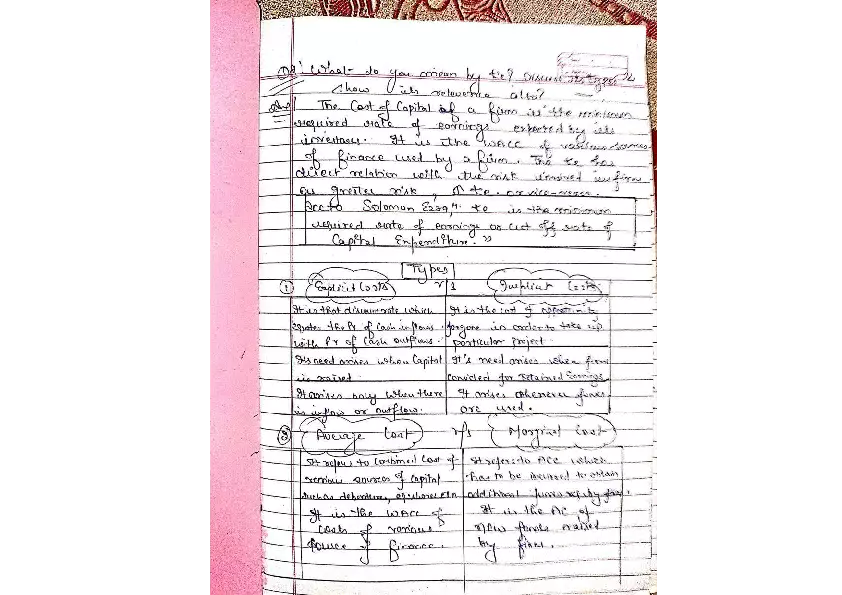 Q1. What do you mean by kc? Discuss its types
show its relevance also?
Ans! The Cost of Capital of a firm is the minimum
required rate of earnings expected by its
investors. It is the WACC of various sources
of finance used by a firm. This kc has
direct relation with the risk involved in firm
as greater risk, ↑ kc or vice-versa.
Acc to Solomon Ezra, kc is the minimum
required rate of earnings or cut off rate of
Capital Expenditure."
Types
① Explicit Costs v/s Implicit Costs
It is that discount rate which It is the cost of opportunity
the Pv of Cash inflows forgone in order to take up
with Pv of Cash outflows. particular project.
Its need arises when Capital It's need arises when firm
is raised. for retained Earnings
It arises only when there It arises whenever funds
is inflow or outflow. are used.
② Average Cost v/s Marginal Cost
It refers to Combined Cost of It refers to ACC which
various sources of Capital has to be incurred to obtain
such as debentures, eq. shares etc. additional funds by firm.
It is the WACC of It is the AC of
Costs of various new funds raised
source of finance. by firm.